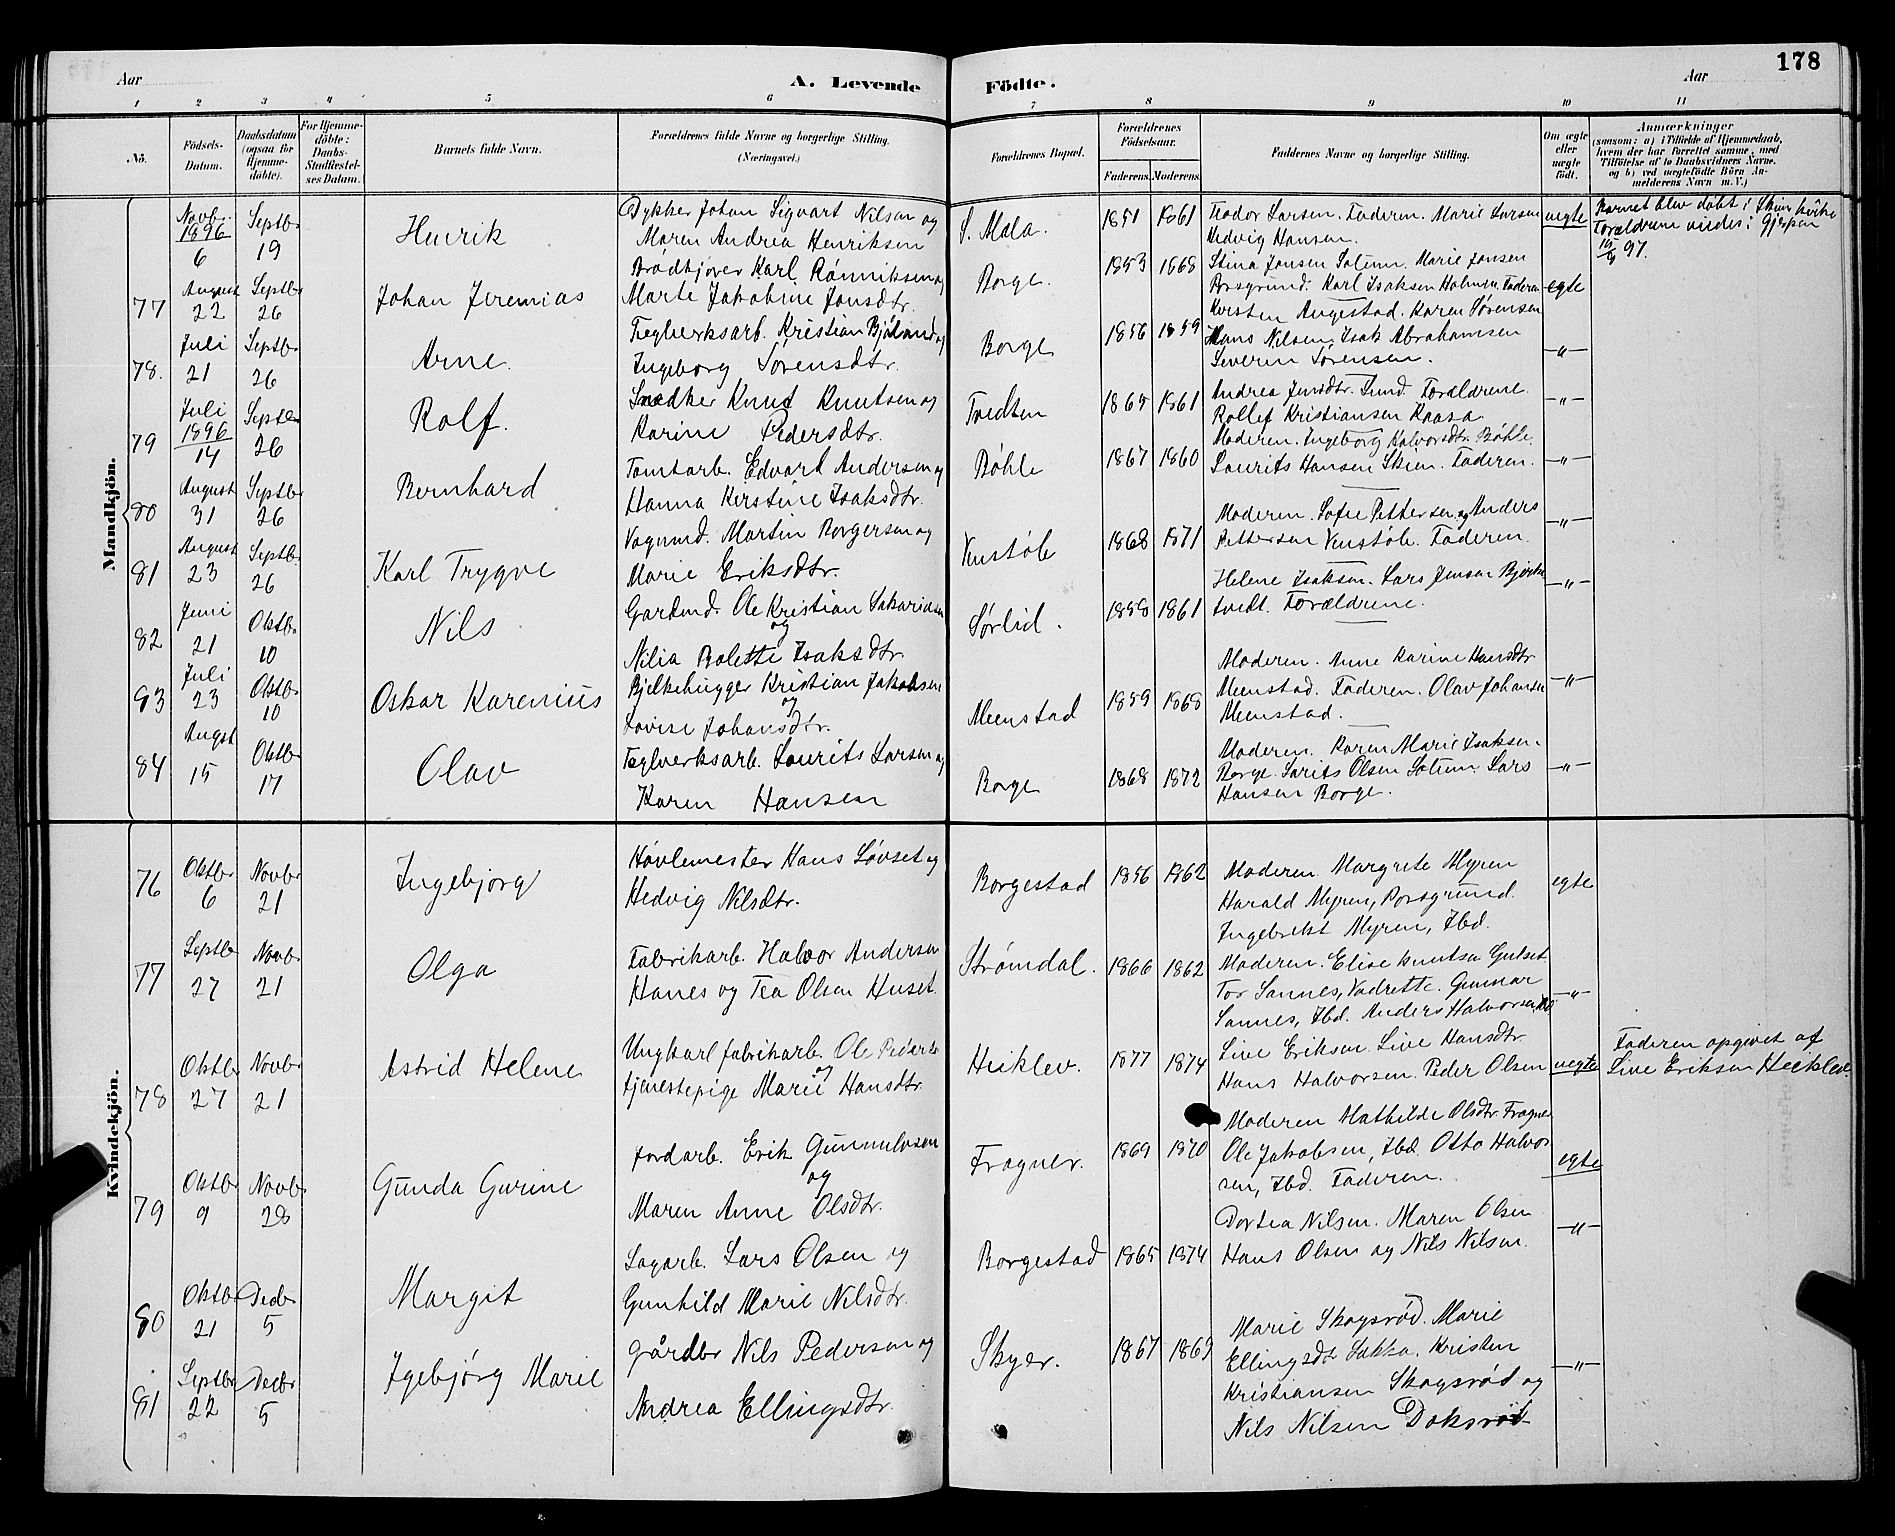 178
Aar
A. Levende
Födte.
Aar
1 2 3 4 5 6 7 8 9 10 11
No.
Födsels-Datum.
Daabsdatum (ogsaa for Hjemme-döbte).
For Hjemme-döbte: Daabs-Stadfæstel-ses Datum.
Barnets fulde Navn.
Forældrenes fulde Navne og borgerlige Stilling. (Næringsvei.)
Forældrenes Bopæl.
Forældrenes Födselsaar.
Faderens. Moderens.
Faddernes Navne og borgerlige Stilling.
Om ægte eller uægte födt.
Anmærkninger
(saasom: a) i Tilfælde af Hjemmedaab,
hvem der har forrettet samme, med
Tilföielse af to Daabsvidners Navne,
og b) ved uægtefödte Börn An-
melderens Navn m. V.)
Mandkjön.
Novb. 1896 6
Septbr 19
Henrik
Dykker Johan Sigvart Nilsen og
Maren Andrea Henriksen
S. Mæla.
1851 1861
Teodor Larsen. Faderen. Marie Larsen
Hedvig Hansen.
uegte
Barnet blev døbt i Skien kirke
Forældrene viedes i Gjerpen
97.
77
August 22
Septbr 26
Johan Jeremias
Brødkjører Karl
Marte Jakobine Jansdtr.
Borge.
1853 1868
Stina Jansen Solum. Marie Jansen
Porsgrund. Karl Isaksen Holmen. Faderen
egte
78.
Juli 21
Septbr 26
Arne.
Teglverksarb. Kristian og
Ingeborg Sørensdtr.
Borge
1856 1859
Kirsten Augestad. Karen Sørensen
Hans Nilsen. Isak Abrahamsen
Severin Sørensen.
—"—
79
Juli 1896 14
Septbr 26
Rolf.
Snedker Knut Knutsen og
Karine Pedersdtr.
Tvedten
1865 1861
Andrea Jensdtr. Lund. Forældrene.
Rollef Kristiansen Raasa.
—"—
80
August 31
Septbr 26
Bernhard
Tomtarb. Edvart Andersen og
Hanna Kirstine Isaksdtr.
Bøhle
1867 1860
Moderen. Ingeborg Halvorsdtr. Bøhle.
Laurits Hansen Skien. Faderen.
—"—
81
August 23
Septbr 26
Karl Trygve
Vognmd. Martin Borgersen og
Marie Eriksdtr.
Venstøb
1868 1871
Moderen. Sofie Pettersen og Anders
Pettersen Venstøb. Faderen.
—"—
82
Juni 21
Oktbr 10
Nils
Gardmd. Ole Kristian Sakariasen
og
Nilia Bolette Isaksdtr.
Sørlid.
1858 1861
Helene Isaksen. Lars Jensen Bjerke
tvedt. Forældrene.
—"—
83
Juli 23
Oktbr 10
Oskar Karenius
Bjelkehugger Kristian Jakobsen
og
Lovise Johansdtr.
Meenstad
1859 1868
Moderen. Anne Karine Hansdtr
Meenstad. Faderen. Olav Johansen
Meenstad.
—"—
84
Augst 15
Oktbr 17
Olav
Teglverksarb. Laurits Larsen og
Karen Hansen
Borge
1868 1872
Moderen. Karen Marie Isaksen.
Borge. Larits Olsen Solum. Lars
Hansen Borge.
—"—
Kvindekjön.
76
Oktbr 6
Novbr 21
Ingebjørg
Høvlemester Hans Løvset og
Hedvig Nilsdtr.
Borgestad
1856 1862
Moderen. Margrete Myren
Harald Myren, Porsgrund.
Ingebrikt Myren, Ibd.
egte
77
Septbr 27
Novbr 21
Olga
Fabrikarb. Halvor Andersen
Hanes og Tea Olsen Huset.
Strømdal.
1866 1862
Moderen. Elise Knutsen Gulset
Tor Sannes, Vadrette. Gunnar
Sannes, Ibd. Anders Halvorsen, Ibd
—"—
78
Oktbr 27
Novbr 21
Astrid Helene
Ungkarl fabrikarb. Ole Pedersen
og
tjenestepige Marie Hansdtr.
Heiklev.
1877 1874
Live Eriksen. Live Hansdtr.
Hans Halvorsen. Peder Olsen
uegte
Faderen opgivet af
Live Eriksen Heiklev.
79
Oktbr 9
Novbr 28
Gunda Gurine
Jordarb. Erik Gunnulvsen
og
Maren Anne Olsdtr.
Frogner.
1869 1870
Moderen Mathilde Olsdtr. Frogner
Ole Jakobsen, Ibd. Otto Halvor
sen, Ibd. Faderen.
egte
80
Oktbr 21
Decbr 5
Margit
Sagarb. Lars Olsen og
Gunhild Marie Nilsdtr.
Borgestad
1865 1874
Dortea Nilsen. Maren Olsen
Hans Olsen og Nils Nilsen.
—"—
81
Septbr 22
Decbr 5
Igebjørg Marie
Gårdbr Nils Pedersen og
Andrea Ellingsdtr.
Skyer.
1867 1869
Marie Skogsrød. Marie
Ellingsdtr Løkka. Kristen
Kristiansen Skogsrød og
Nils Nilsen Doksrød
—"—